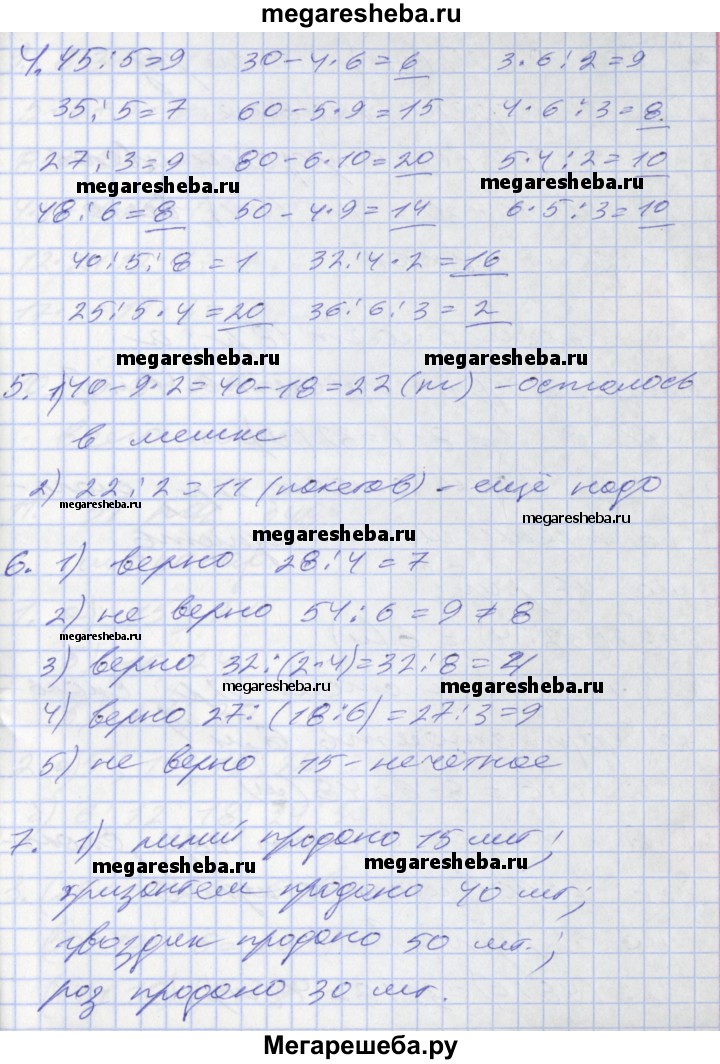 megaresheba.ru
4. 45:5=9 30-4·6=6 3·6:2=9
35:5=7 60-5·9=15 4·6:3=8
27:3=9 80-6·10=20 5·4:2=10
megaresheba.ru megaresheba.ru
48:6=8 50-4·9=14 6·5:3=10
40:5:8=1 32:4·2=16
25:5·4=20 36:6:3=2
megaresheba.ru megaresheba.ru
5. 1) 40-9·2=40-18=22 (кг) - осталось
в мешке
2) 22:2=11 (пакетов) - ещё надо
megaresheba.ru megaresheba.ru
megaresheba.ru
6. 1) верно 28:4=7
2) не верно 54:6=9≠8
megaresheba.ru
3) верно 32:(2·4)=32:8=4
megaresheba.ru megaresheba.ru
4) верно 27:(18:6)=27:3=9
5) не верно 15-нечётное
7. 1) лилий продано 15 шт;
megaresheba.ru megaresheba.ru
хризантем продано 40 шт;
гвоздик продано 50 шт.;
megaresheba.ru megaresheba.ru
роз продано 30 шт.
Мегарешеба.ру